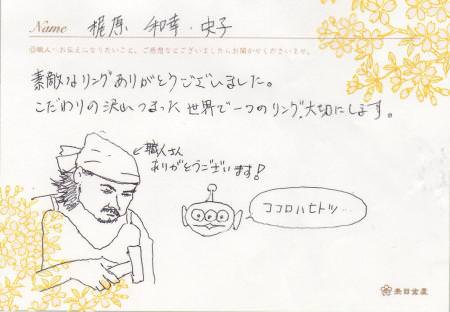 Name 梶原 和幸・央子
◎職人へお伝えになりたいこと、ご感想などございましたらお聞かせくださいませ。
素敵なリングありがとうございました。
こだわりの沢山つまった世界で一つのリング、大切にします。
←職人さん
ありがとうございます!
ココロハヒトツ…
杢目金屋